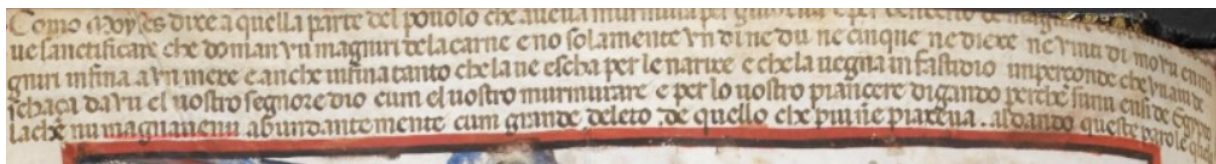 Como moyses dixe a quella parte del pouolo che aueua murmura per
ue sanctificare che doman vu magnari de la carne e no solamente vn di ne du ne cinque ne diexe ne vinti di mo vu en m
gnari infina a vn mexe e anche infina tanto che la ne escha per le narixe e che la uegna in fastidio imperconde che vu aui de
schaça da vu el uostro segnore dio cum el uostro murmurare e per lo uostro piançere digando perchè sunu ensi de Egypto
la chè nu magnauemu abundantemente cum grande deleto de quello che piu ne piaxeua. Aldando queste parole